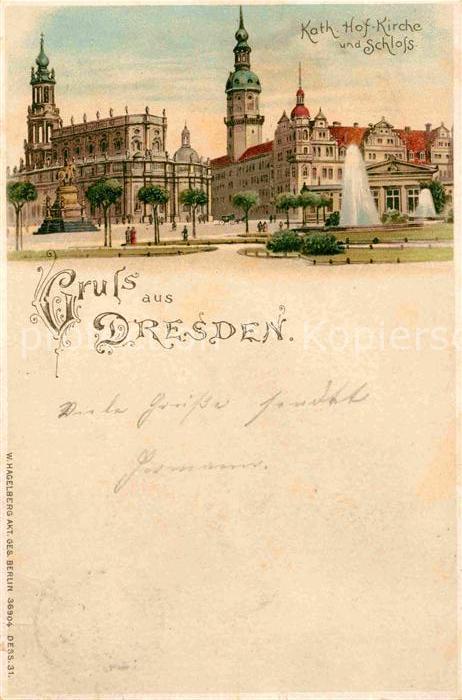 Kath. Hof-Kirche
und Schloſs
Gruſs aus
DRESDEN.
Viele Grüße sendet
Hermann.
W. HAGELBERG AKT. GES. BERLIN 36904 DESS. 31.